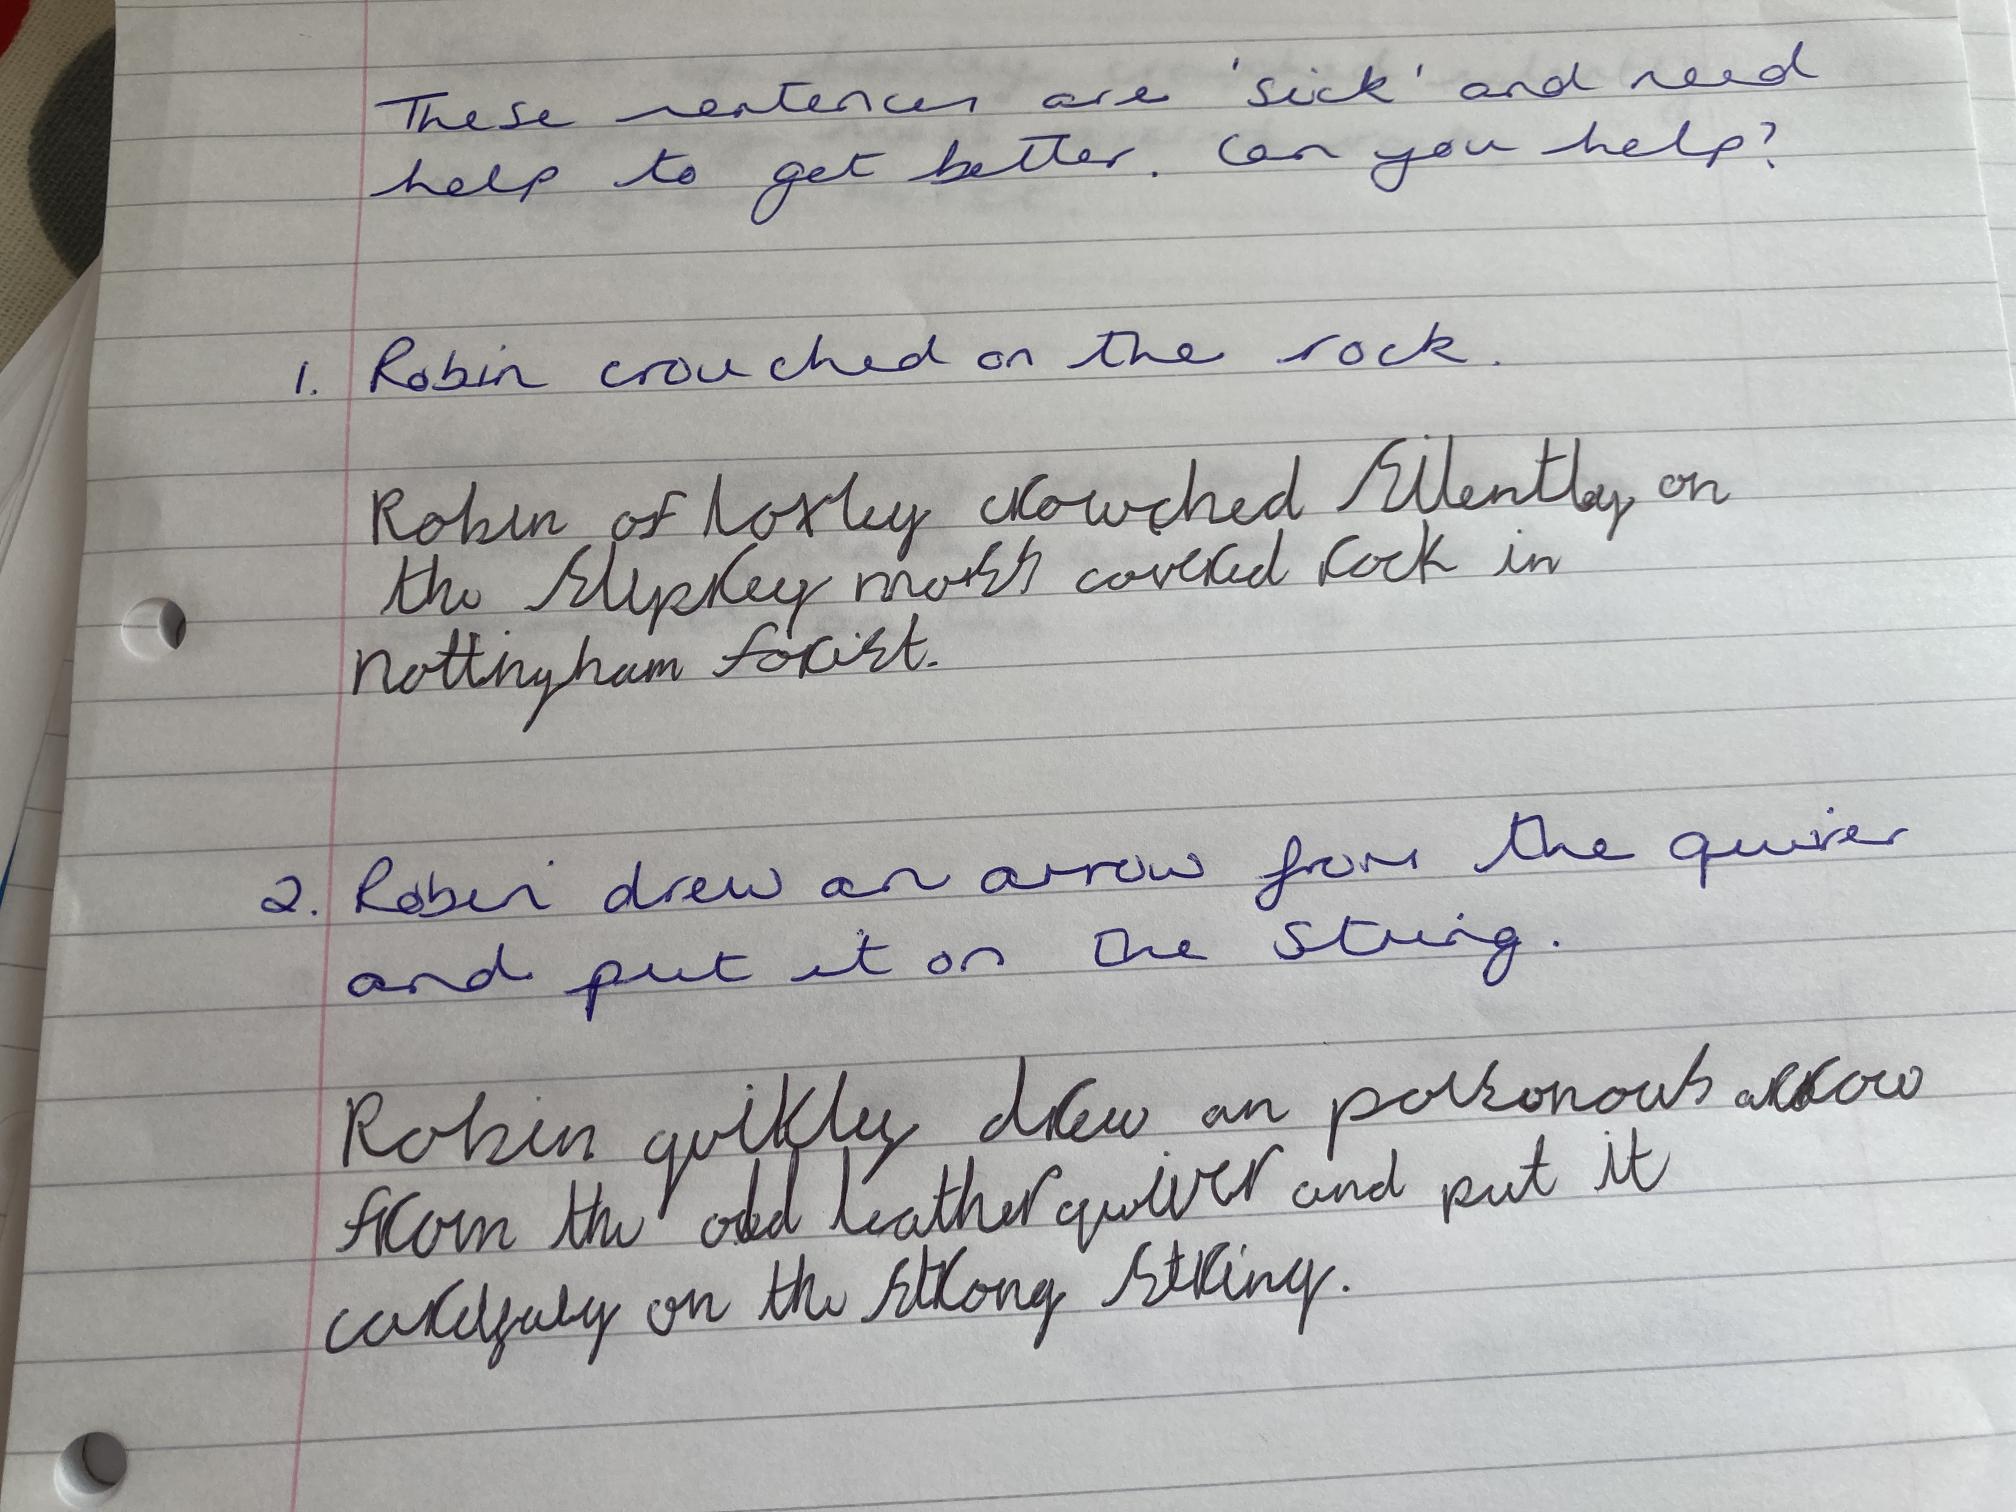 These sentences are 'sick' and need
help to get better. Can you help?
1. Robin crouched on the rock.
Robin of Loxley crowched Sillently on
the Slipkey moss covered rock in
Nottingham forist.
2. Robin drew an arrow from the quiver
and put it on the string.
Robin quikley drew an poisonous arrow
from the old leather quiver and put it
carefuly on the strong string.